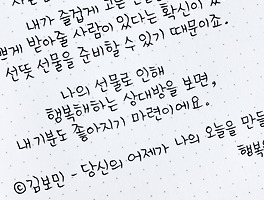 내가 즐겁게 고른
쁘게 받아줄 사람이 있다는 확신이 있
선뜻 선물을 준비할 수 있기 때문이죠.
나의 선물로 인해
행복해하는 상대방을 보면,
내 기분도 좋아지기 마련이에요.
©김보민 - 당신의 어제가 나의 오늘을 만들
행복